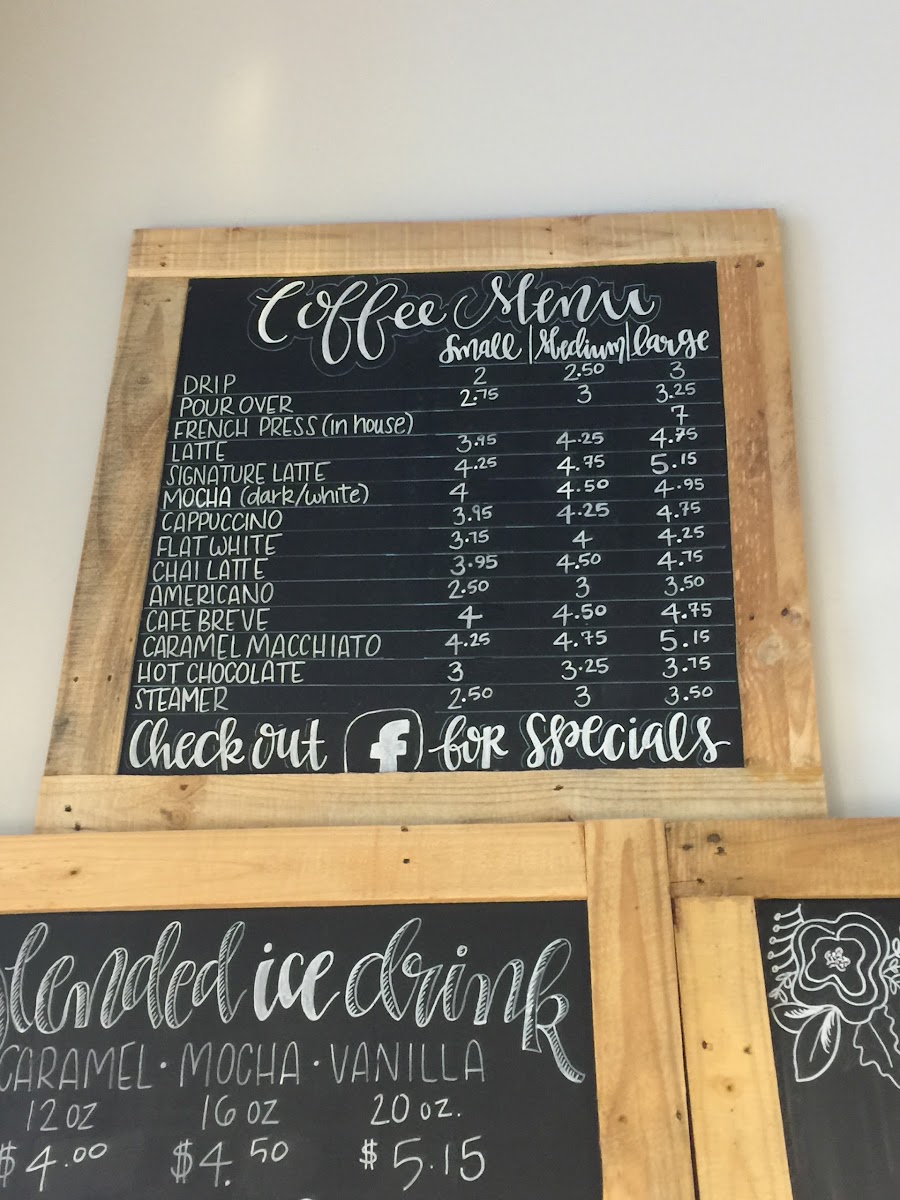 Coffee Menu
small | Medium | large
DRIP 2 2.50 3
POUR OVER 2.75 3 3.25
FRENCH PRESS (in house) 7
LATTE 3.95 4.25 4.75
SIGNATURE LATTE 4.25 4.75 5.15
MOCHA (dark/white) 4 4.50 4.95
CAPPUCCINO 3.95 4.25 4.75
FLAT WHITE 3.75 4 4.25
CHAI LATTE 3.95 4.50 4.75
AMERICANO 2.50 3 3.50
CAFE BREVE 4 4.50 4.75
CARAMEL MACCHIATO 4.25 4.75 5.15
HOT CHOCOLATE 3 3.25 3.75
STEAMER 2.50 3 3.50
Check out f for specials
lended ice drink
CARAMEL · MOCHA · VANILLA
12 OZ 16 OZ 20 OZ.
$4.00 $4.50 $5.15